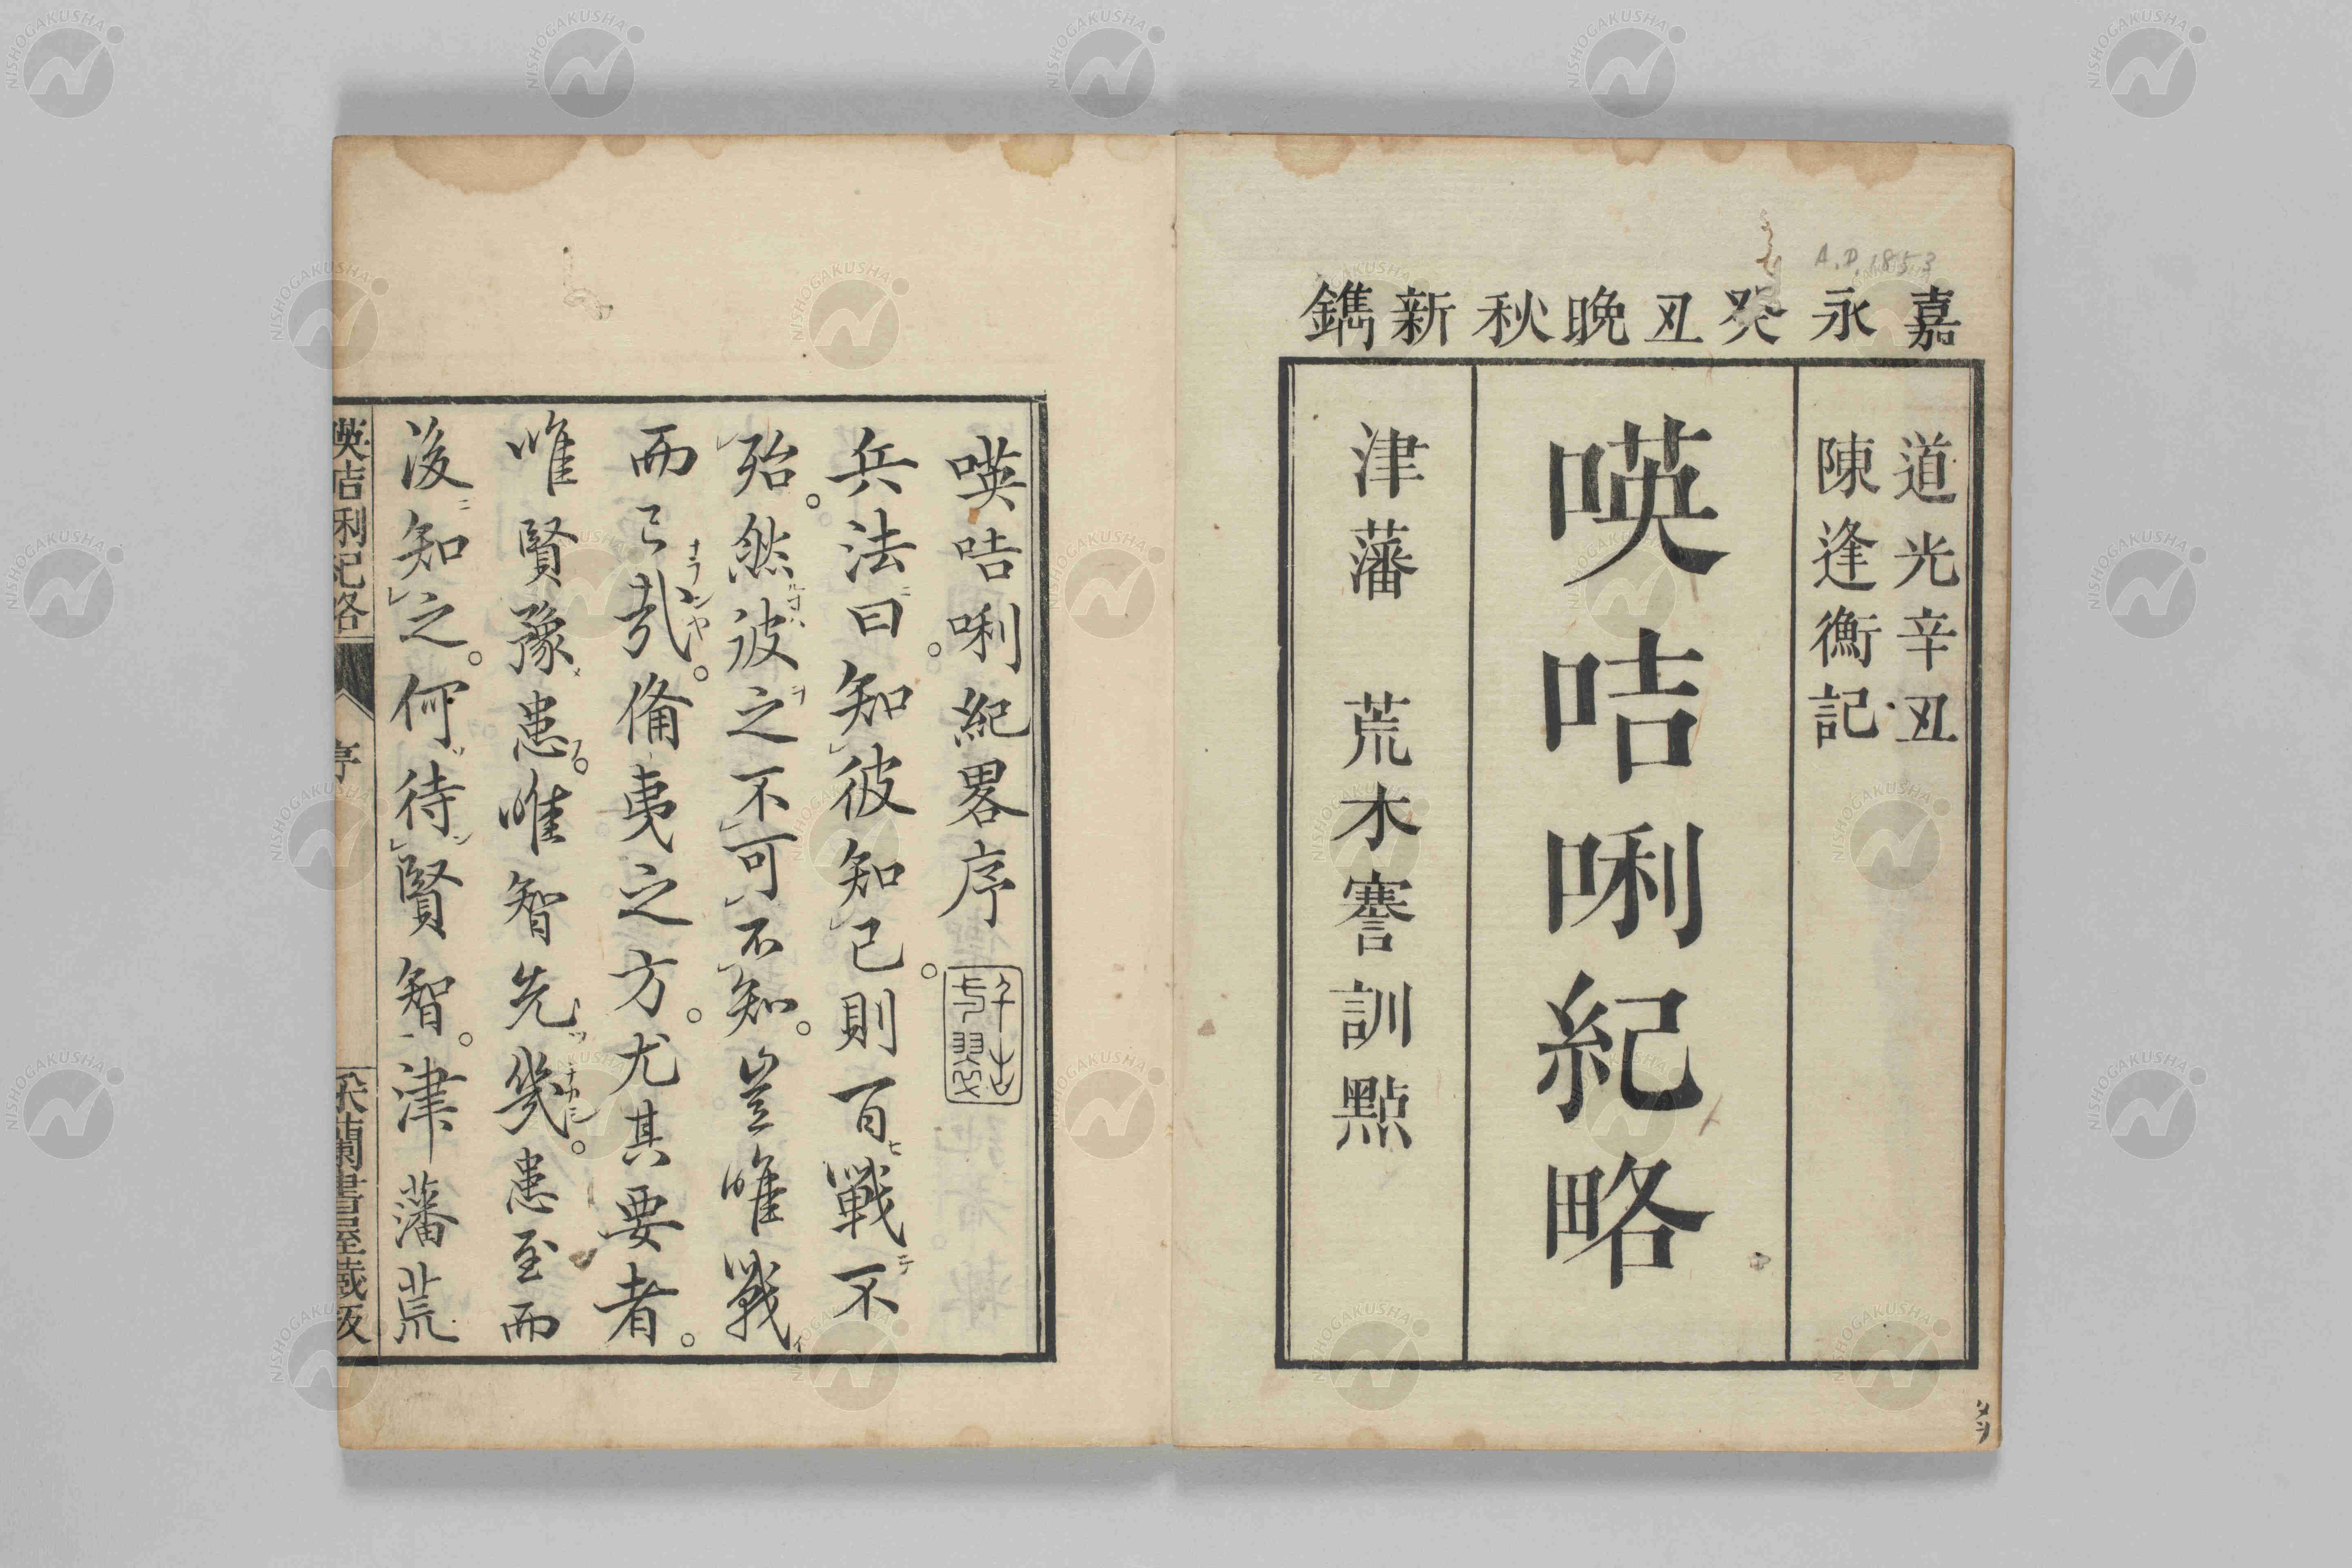 A.D.1853
嘉永癸丑晩秋新鐫
道光辛丑
陳逢衡記
暎咭唎紀略
津藩 荒木謇訓點
暎咭唎紀畧序
兵法曰知彼知己則百戰不
殆然彼之不可不知豈唯戰
而已哉備夷之方尤其要者
唯賢豫患唯智先幾患至而
後知之何待賢智津藩荒
暎咭唎紀略
序
蘭書屋藏板
NISHOGAKUSHA